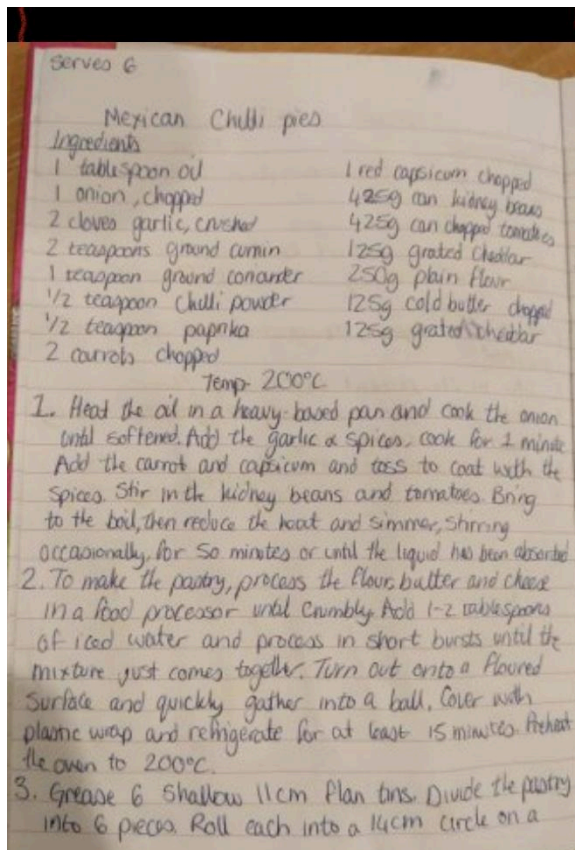 Serves 6
Mexican Chilli pies
Ingredients
1 tablespoon oil
1 onion, chopped
2 cloves garlic, crushed
2 teaspoons ground cumin
1 teaspoon ground coriander
1/2 teaspoon chilli powder
1/2 teaspoon paprika
2 carrots chopped
1 red capsicum chopped
425g can kidney beans
425g can chopped tomatoes
125g grated Cheddar
250g plain flour
125g cold butter chopped
125g grated cheddar
Temp- 200°C
1. Heat the oil in a heavy-based pan and cook the onion
until softened. Add the garlic & spices, cook for 1 minute
Add the carrot and capsicum and toss to coat with the
spices. Stir in the kidney beans and tomatoes. Bring
to the boil, then reduce the heat and simmer, stirring
occasionally, for 50 minutes or until the liquid has been absorbed
2. To make the pastry, process the flour, butter and cheese
in a food processor until crumbly. Add 1-2 tablespoons
of iced water and process in short bursts until the
mixture just comes together. Turn out onto a floured
surface and quickly gather into a ball. Cover with
plastic wrap and refrigerate for at least 15 minutes. Preheat
the oven to 200°C.
3. Grease 6 shallow 11cm flan tins. Divide the pastry
into 6 pieces. Roll each into a 14cm circle on a